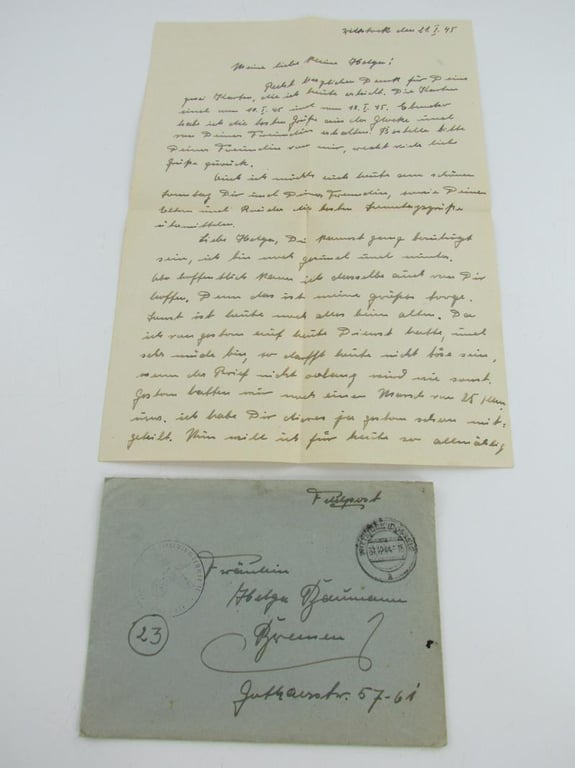 Wittstock den 21.I.45
Meine liebe kleine Helga!
Recht herzlichen Dank für Deine
zwei Karten, die ich heute erhielt. Die Karten
sind vom 10.I.45 und vom 18.I.45. Ebender
habe ich die besten Grüße aus der Glocke und
von Deiner Freundin erhalten. Bestelle bitte
Deiner Freundin von mir, recht viele liebe
Grüße zurück.
Auch ich möchte euch heute am schönen
Sonntag Dir und Deiner Freundin, sowie Deinen
Eltern und die besten Sonntagsgrüße
übermitteln.
Liebe Helga, Du kannst ganz beruhigt
sein, ich bin noch gesund und munter.
Also hoffentlich kann ich dasselbe auch von Dir
hoffen. Denn das ist meine größte Sorge.
Sonst ist heute noch alles beim alten. Da
ich von gestern auf heute Dienst hatte, und
sehr müde bin, so darfst heute nicht böse sein,
wenn der Brief nicht solang wird wie sonst.
Gestern hatten wir noch einen Marsch von 25 klm
usw. ich habe Dir dieses ja gestern schon mit-
geteilt. Nun will ich für heute so allmählig
Feldpost
Fräulein
Helga Baumann
23
Bremen
Gothaerstr. 57-61